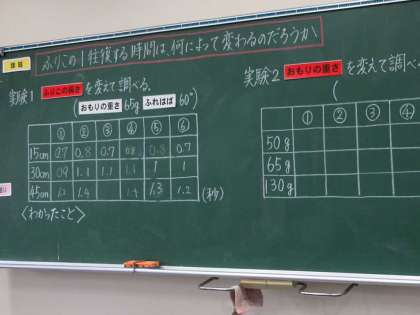 課題
ふりこの1往復する時間は、何によって変わるのだろうか
実験1 ふりこの長さ を変えて調べる。
(おもりの重さ 65g ふれはば 60°)
① ② ③ ④ ⑤ ⑥
15cm 0.7 0.8 0.7 0.8 0.8 0.7
30cm 0.9 1.1 1.1 1.1 1 1
45cm 1.4 1.4 1.3 1.2 (秒)
<わかったこと>
実験2 おもりの重さ を変えて調べ
(
① ② ③ ④
50g
65g
130g